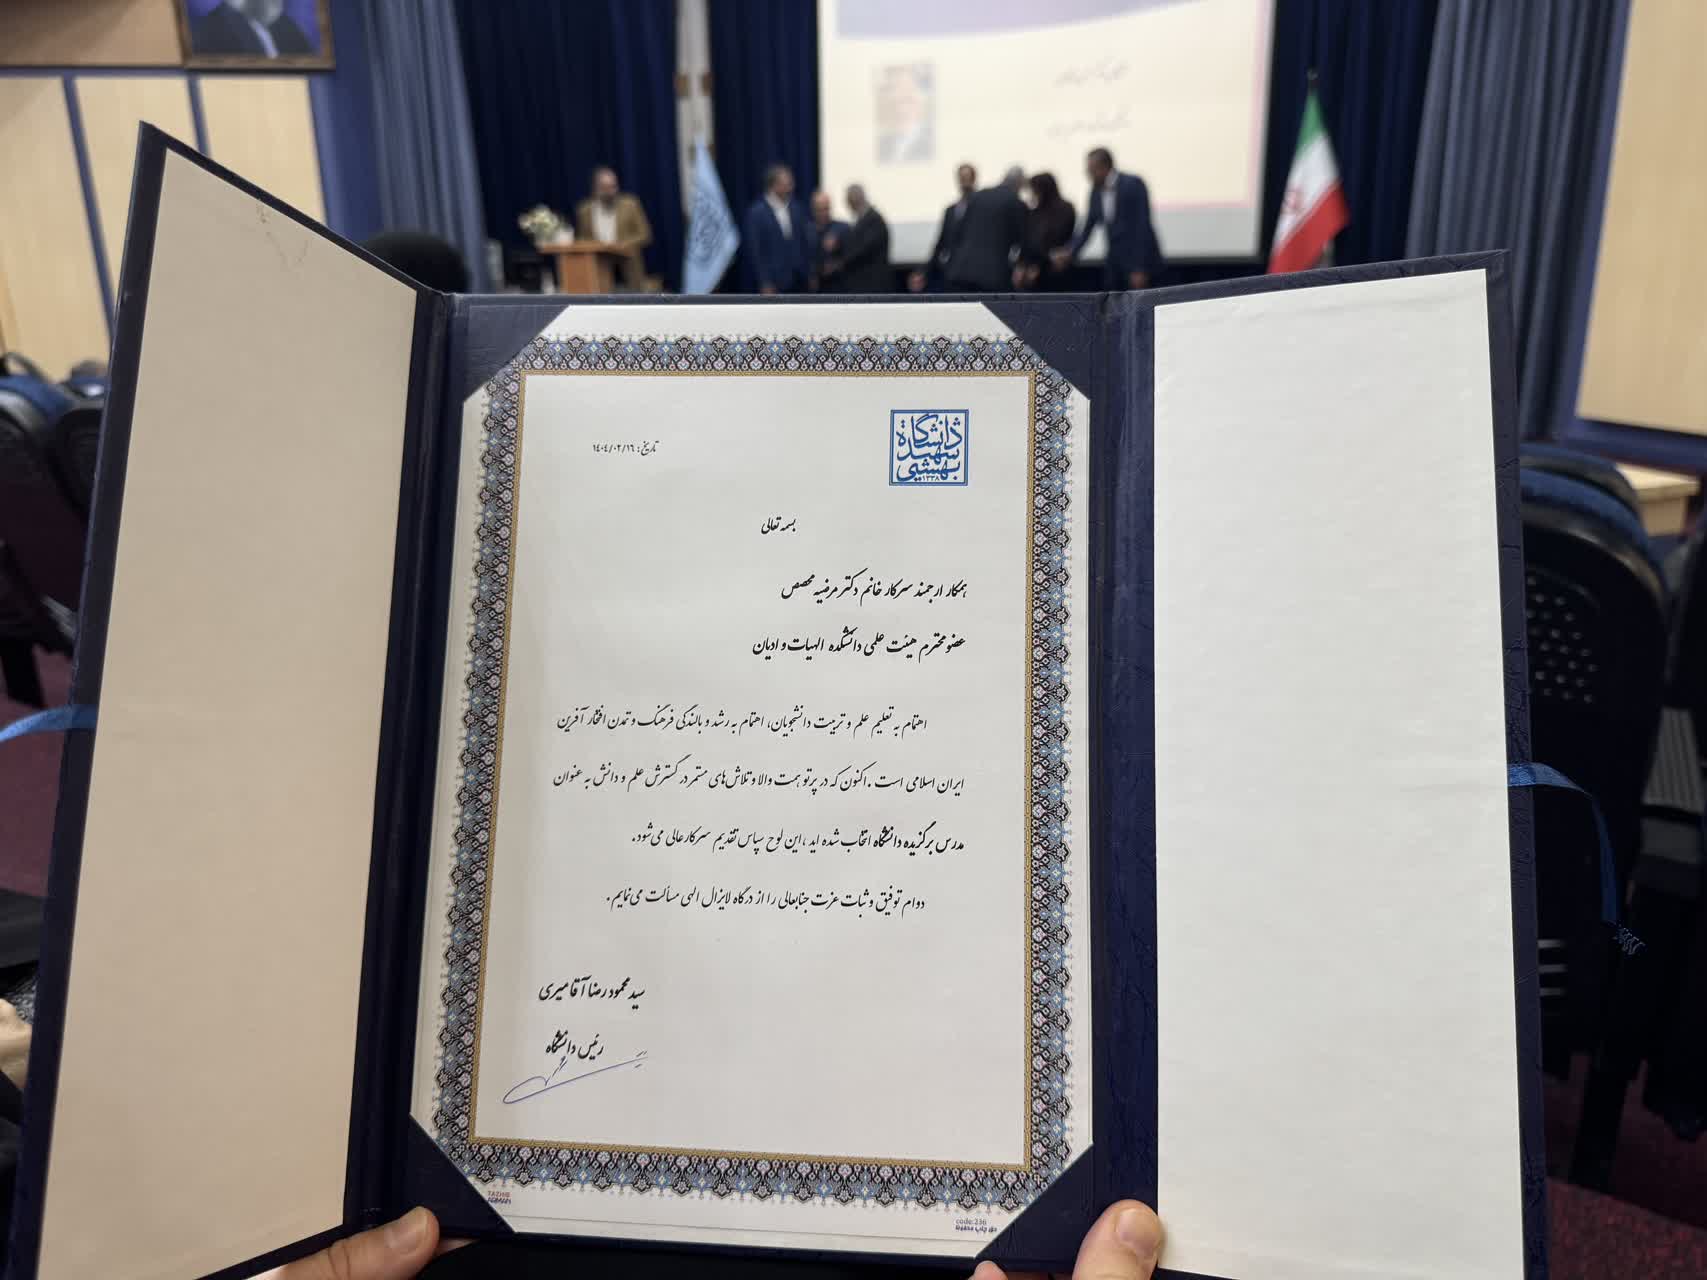 دانشگاه
شهید
بهشتی
۱۳۳۸
تاریخ: ۱۴۰۴/۰۲/۱۶
بسمه تعالی
همکار ارجمند سرکار خانم دکتر مرضیه محصص
عضو محترم هیئت علمی دانشکده الهیات و ادیان
اهتمام به تعلیم علم و تربیت دانشجویان، اهتمام به رشد و بالندگی فرهنگ و تمدن افتخار آفرین
ایران اسلامی است. اکنون که در پرتو همت والا و تلاش‌های مستمر در گسترش علم و دانش به عنوان
مدرس برگزیده دانشگاه انتخاب شده اید، این لوح سپاس تقدیم سرکارعالی می‌شود.
دوام توفیق و ثبات عزت جنابعالی را از درگاه لایزال الهی مسألت می‌نمایم.
سید محمود رضا آقامیری
رئیس دانشگاه
TAZHIB
ARMAN
code:236
حق چاپ محفوظ